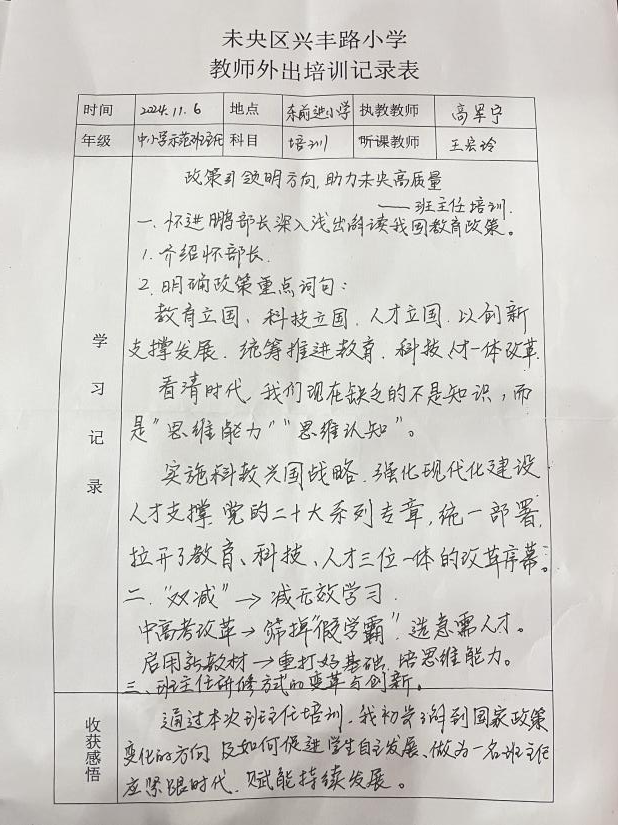 未央区兴丰路小学
教师外出培训记录表
时间 2024.11.6 地点 东前进小学 执教教师 高军宁
年级 中小学示范班主任 科目 培训 听课教师 王宏玲
政策引领明方向,助力未央高质量
——班主任培训.
一.怀进鹏部长深入浅出解读我国教育政策。
1.介绍怀部长.
2.明确政策重点词句:
教育立国、科技立国、人才立国.以创新
支撑发展.统筹推进教育.科技.人才一体改革.
看清时代.我们现在缺乏的不是知识,而
是“思维能力”“思维认知”。
实施科教兴国战略.强化现代化建设
人才支撑.党的二十大系列专章,统一部署,
拉开了教育、科技、人才三位一体的改革序幕。
二.“双减”→减无效学习.
中高考改革→筛掉“假学霸”.选急需人才。
启用新教材→重打好基础.培思维能力。
三、班主任研修方式的变革与创新。
学习记录
通过本次班主任培训.我初步了解到国家政策
变化的方向及如何促进学生自主发展、做为一名班主任
应紧跟时代.赋能持续发展。
收获感悟